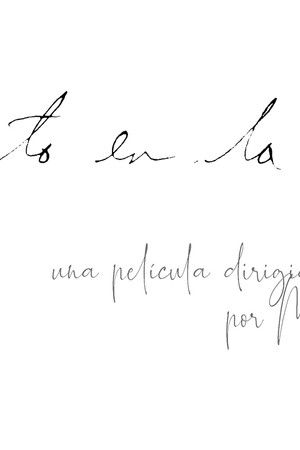 to en la
una película dirigi
por